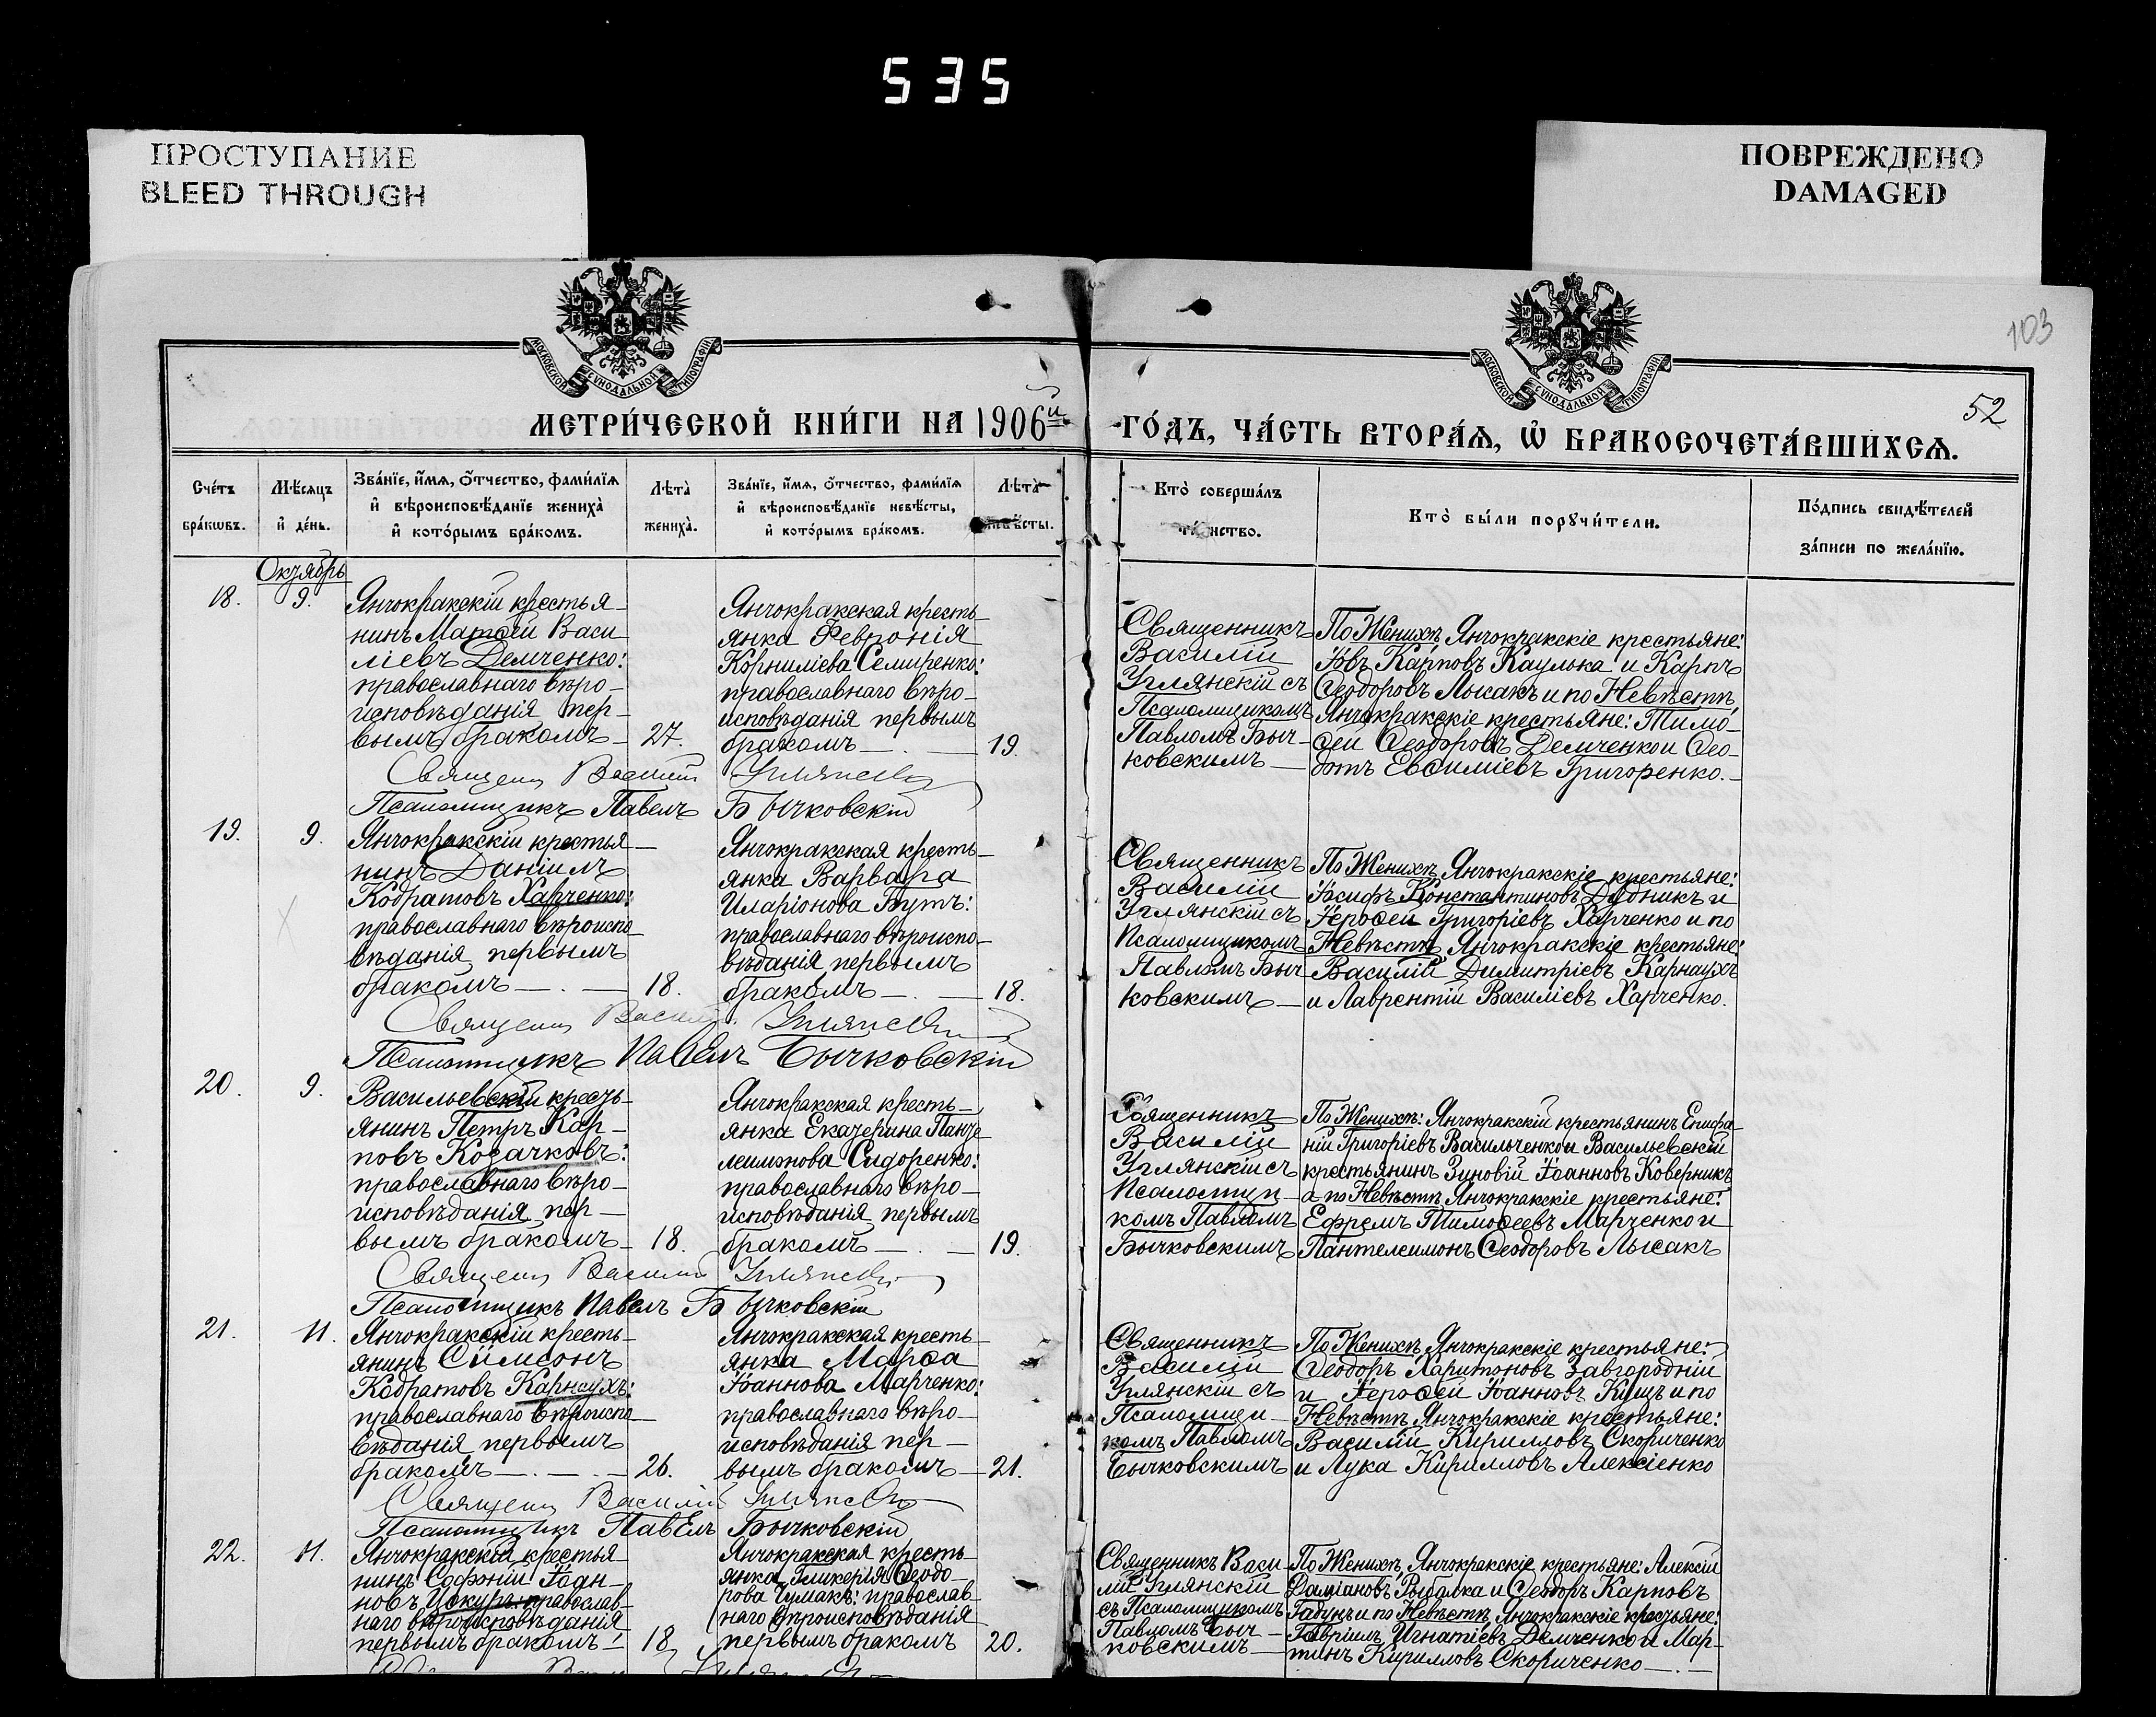 535
ПРОСТУПАНИЕ
BLEED THROUGH
ПОВРЕЖДЕНО
DAMAGED
103
МОСКОВСКОЙ СѴНОДАЛЬНОЙ ТИПОГРАФІИ
МОСКОВСКОЙ СѴНОДАЛЬНОЙ ТИПОГРАФІИ
52
МЕТРИ́ЧЕСКОЙ КНИ́ГИ НА 1906й ГО́ДЪ, ЧА́СТЬ ВТОРА́Я, Ѡ БРАКОСОЧЕТА́ВШИХСЯ.
Сче́тъ бра́кѡвъ.
Мѣ́сяцъ и́ де́нь.
Зва́нїе, и́мя, ѻ́тчество, фами́лїя
и́ вѣроисповѣ́данїе жениха̀
и́ кото́рымъ бра́комъ.
Лѣта̀ жениха̀.
Зва́нїе, и́мя, ѻ́тчество, фами́лїя
и́ вѣроисповѣ́данїе невѣ́сты,
и́ кото́рымъ бра́комъ.
Лѣта̀ невѣ́сты.
Кто̀ соверша́лъ
та́инство.
Кто̀ бы́ли порꙋчи́тели.
По́дпись свидѣ́телей
за́писи по жела́нїю.
Октябрь
18.
9.
Янчокракскій крестья-
нинъ Матѳей Васи
ліевъ Демченко:
православнаго вѣро-
исповѣданія пер-
вымъ бракомъ- 27.
Янчокракская кресть-
янка Февронія
Корниліева Семиренко:
православнаго вѣро-
исповѣданія первымъ
бракомъ 19.
Священникъ
Василій
Углянскій съ
Псаломщикомъ
Павломъ Быч-
ковскимъ
По Женихѣ Янчокракскіе крестьяне:
Іовъ Карповъ Каулька и Карпъ
Ѳеодоровъ Лысакъ и по Невѣстѣ,
Янчокракскіе крестьяне: Тимо-
ѳей Ѳеодоровъ Демченко и Ѳео-
дотъ Евѳиміевъ Григоренко.
Священ Василій Углянскій
Псаломщикъ Павелъ Бычковскій
19.
9.
Янчокракскій крестья-
нинъ Даніилъ
Кодратовъ Харченко:
православнаго вѣроиспо-
вѣданія первымъ
бракомъ 18.
Янчокракская кресть-
янка Варвара
Иларіонова Бутъ:
православнаго вѣроиспо-
вѣданія первымъ
бракомъ 18.
Священникъ
Василій
Углянскій съ
Псаломщикомъ
Павломъ Быч
ковскимъ
По Женихѣ Янчокракскіе крестьяне:
Іосифъ Константиновъ Дудникъ и
Іероѳей Григоріевъ Харченко и по
Невѣстѣ Янчокракскіе крестьяне:
Василій Димитріевъ Карнаухъ
и Лаврентій Василіевъ Харченко.
Священ Василій Углянскій
Псаломщикъ Павелъ Бычковскій
20.
9.
Васильевскій кресть-
янинъ Петръ Кар-
повъ Козачковъ:
православнаго вѣро-
исповѣданія пер-
вымъ бракомъ- 18.
Янчокракская кресть-
янка Екатерина Панте
леимонова Сидоренко:
православнаго вѣро-
исповѣданія первымъ
бракомъ 19.
Священникъ
Василій
Углянскій съ
Псаломщи-
комъ Павломъ
Бычковскимъ
По Женихѣ: Янчокракскій крестьянинъ Епифа-
ній Григоріевъ Васильченко и Васильевскій
крестьянинъ Зиновій Іоанновъ Коверникъ
а по Невѣстѣ Янчокракскіе крестьяне:
Ефремъ Тимоѳеевъ Марченко и
Пантелеимонъ Ѳеодоровъ Лысакъ
Священ Василій Углянскій
Псаломщикъ Павелъ Бычковскій
21.
11.
Янчокракскій кресть-
янинъ Сѵмеонъ
Кодратовъ Карнаухъ:
православнаго вѣроиспо-
вѣданія первымъ
бракомъ 26.
Янчокракская кресть-
янка Марѳа
Іоаннова Марченко:
православнаго вѣро-
исповѣданія пер-
вымъ бракомъ 21.
Священникъ
Василій
Углянскій съ
Псаломщи-
комъ Павломъ
Бычковскимъ
По Женихѣ Янчокракскіе крестьяне:
Ѳеодоръ Харитоновъ Завгородній
и Іероѳей Іоанновъ Кущъ и по
Невѣстѣ Янчокракскіе крестьяне:
Василій Кирилловъ Скориченко
и Лука Кирилловъ Алексіенко
Священ Василій Углянскій
Псаломщикъ Павелъ Бычковскій
22.
11.
Янчокракскій крестья-
нинъ Софоній Іоан-
новъ православ-
наго вѣроисповѣданія
первымъ бракомъ 18
Янчокракская кресть-
янка Гликерія Ѳеодо-
рова Чумакъ: православ-
наго вѣроисповѣданія
первымъ бракомъ 20.
Священникъ Васи
лій Углянскій
съ Псаломщикомъ
Павломъ Быч-
ковскимъ
По Женихѣ, Янчокракскіе крестьяне: Алексій
Даміановъ Рыбалка и Ѳеодоръ Карповъ
Гадунъ и по Невѣстѣ, Янчокракскіе крестьяне:
Гавріилъ Игнатіевъ Демченко и Мар-
тинъ Кирилловъ Скориченко